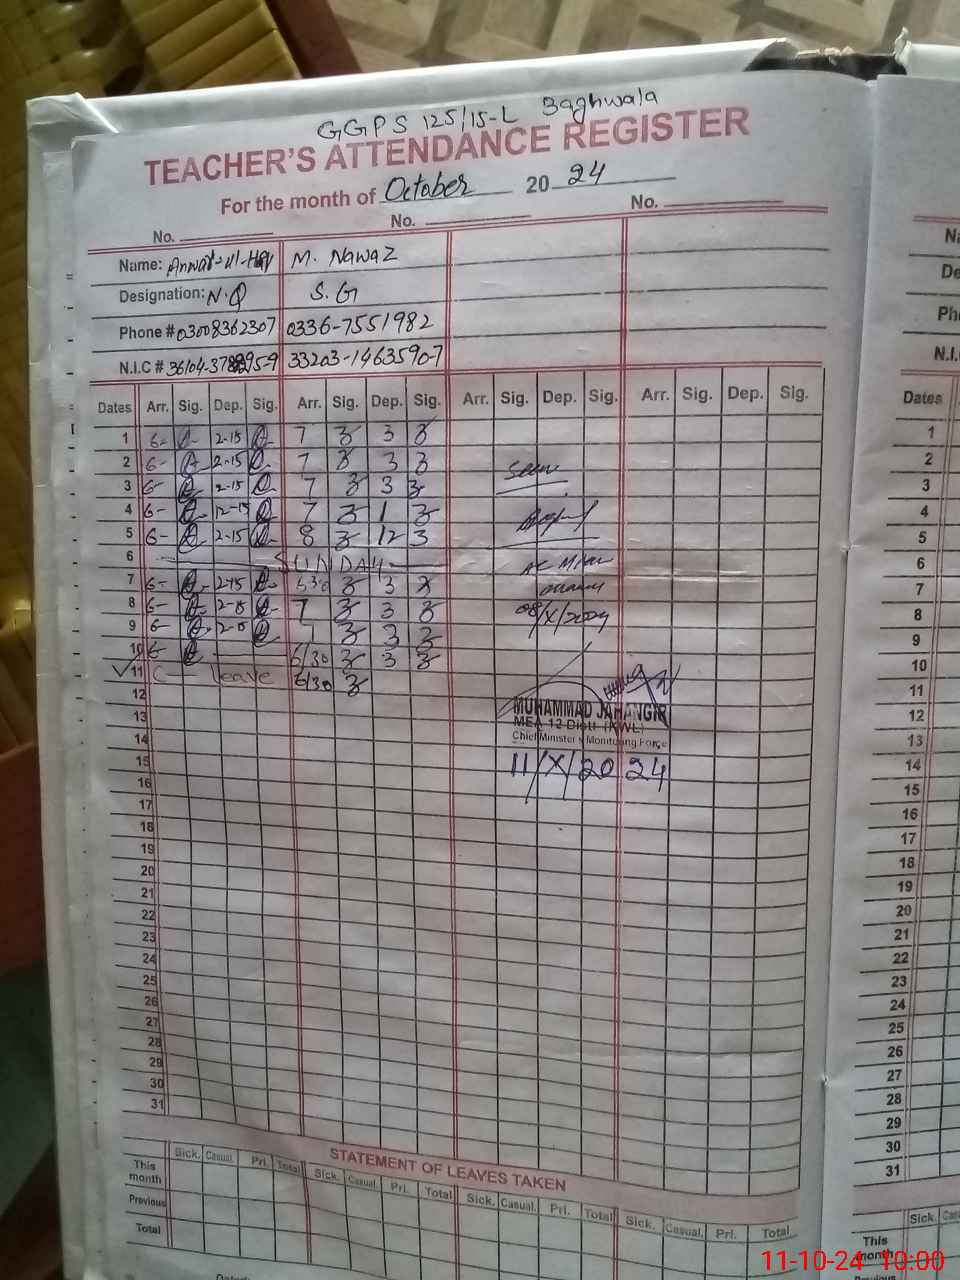 GGPS 125/15-L Baghwala
TEACHER'S ATTENDANCE REGISTER
For the month of October 2024
No. No. No.
Name: Anwar-ul-Haq M. Nawaz
Designation: N.Q S.G
Phone # 03008362307 0336-7551982
N.I.C # 33203-1463590-7
Dates Arr. Sig. Dep. Sig. Arr. Sig. Dep. Sig. Arr. Sig. Dep. Sig. Arr. Sig. Dep. Sig.
1 6- 2-15 7 3
2 6- 2-15 7 3
3 6- 2-15 7 3
4 6- 12-15 7 1
5 6- 2-15 8 12
6 SUNDAY
7 6- 2-15 630 3
8 6- 2-15 7 3
9 6- 2-15 3
10 6- 6/30 3
11 C- leave 6/30
12
13
14
15
16
17
18
19
20
21
22
23
24
25
26
27
28
29
30
31
Seen
08/X/2024
MUHAMMAD JAHANGIR
MEA-12 Distt- (KWL)
Chief Minister's Monitoring Force
11/X/2024
STATEMENT OF LEAVES TAKEN
Sick. Casual. Pri. Total Sick. Casual. Pri. Total Sick. Casual. Pri. Total Sick. Casual. Pri. Total
This month
Previous
Total
Dates
1
2
3
4
5
6
7
8
9
10
11
12
13
14
15
16
17
18
19
20
21
22
23
24
25
26
27
28
29
30
31
Sick.
This month
11-10-24 10:00